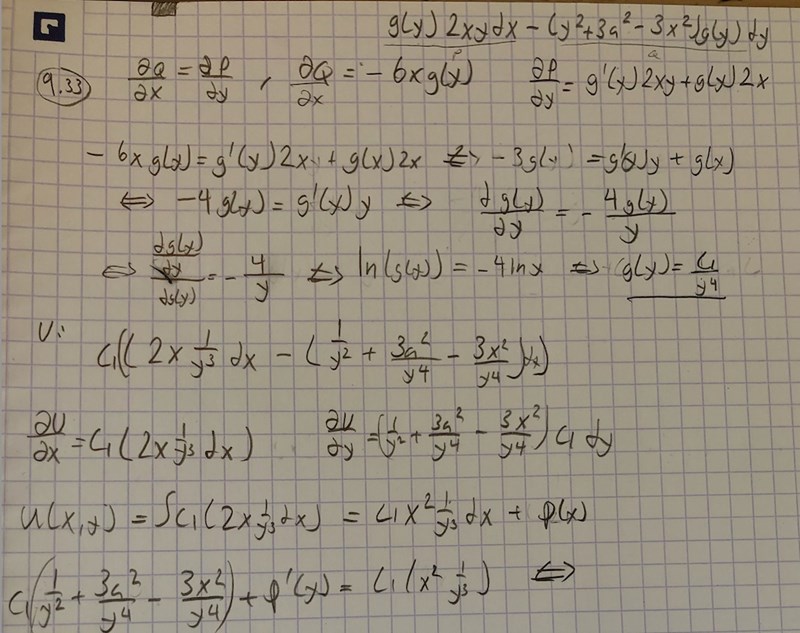 g(y) 2xydx - (y²+3a²-3x²)g(y) dy
P Q
9.33 ∂Q/∂x = ∂P/∂y , ∂Q/∂x = -6xg(y) ∂P/∂y = g'(y)2xy+g(y)2x
-6xg(y) = g'(y)2xy + g(y)2x ⇔ -3g(y) = g'(y)y + g(y)
⇔ -4g(y) = g'(y)y ⇔ ∂g(y)/∂y = - 4g(y)/y
⇔ = - 4/y ⇔ ln(g(y)) = -4lnx ⇔ g(y) = C₁/y⁴
U:
C₁((2x 1/y³ dx - (1/y² + 3a²/y⁴ - 3x²/y⁴)dx)
∂U/∂x = C₁(2x 1/y³ dx) ∂U/∂y = (1/y² + 3a²/y⁴ - 3x²/y⁴) C₁ dy
U(x,y) = ∫C₁(2x 1/y³ dx) = C₁x² 1/y³ dx + φ(x)
C₁(1/y² + 3a²/y⁴ - 3x²/y⁴) + φ'(y) = C₁(x² 1/y³) ⇔